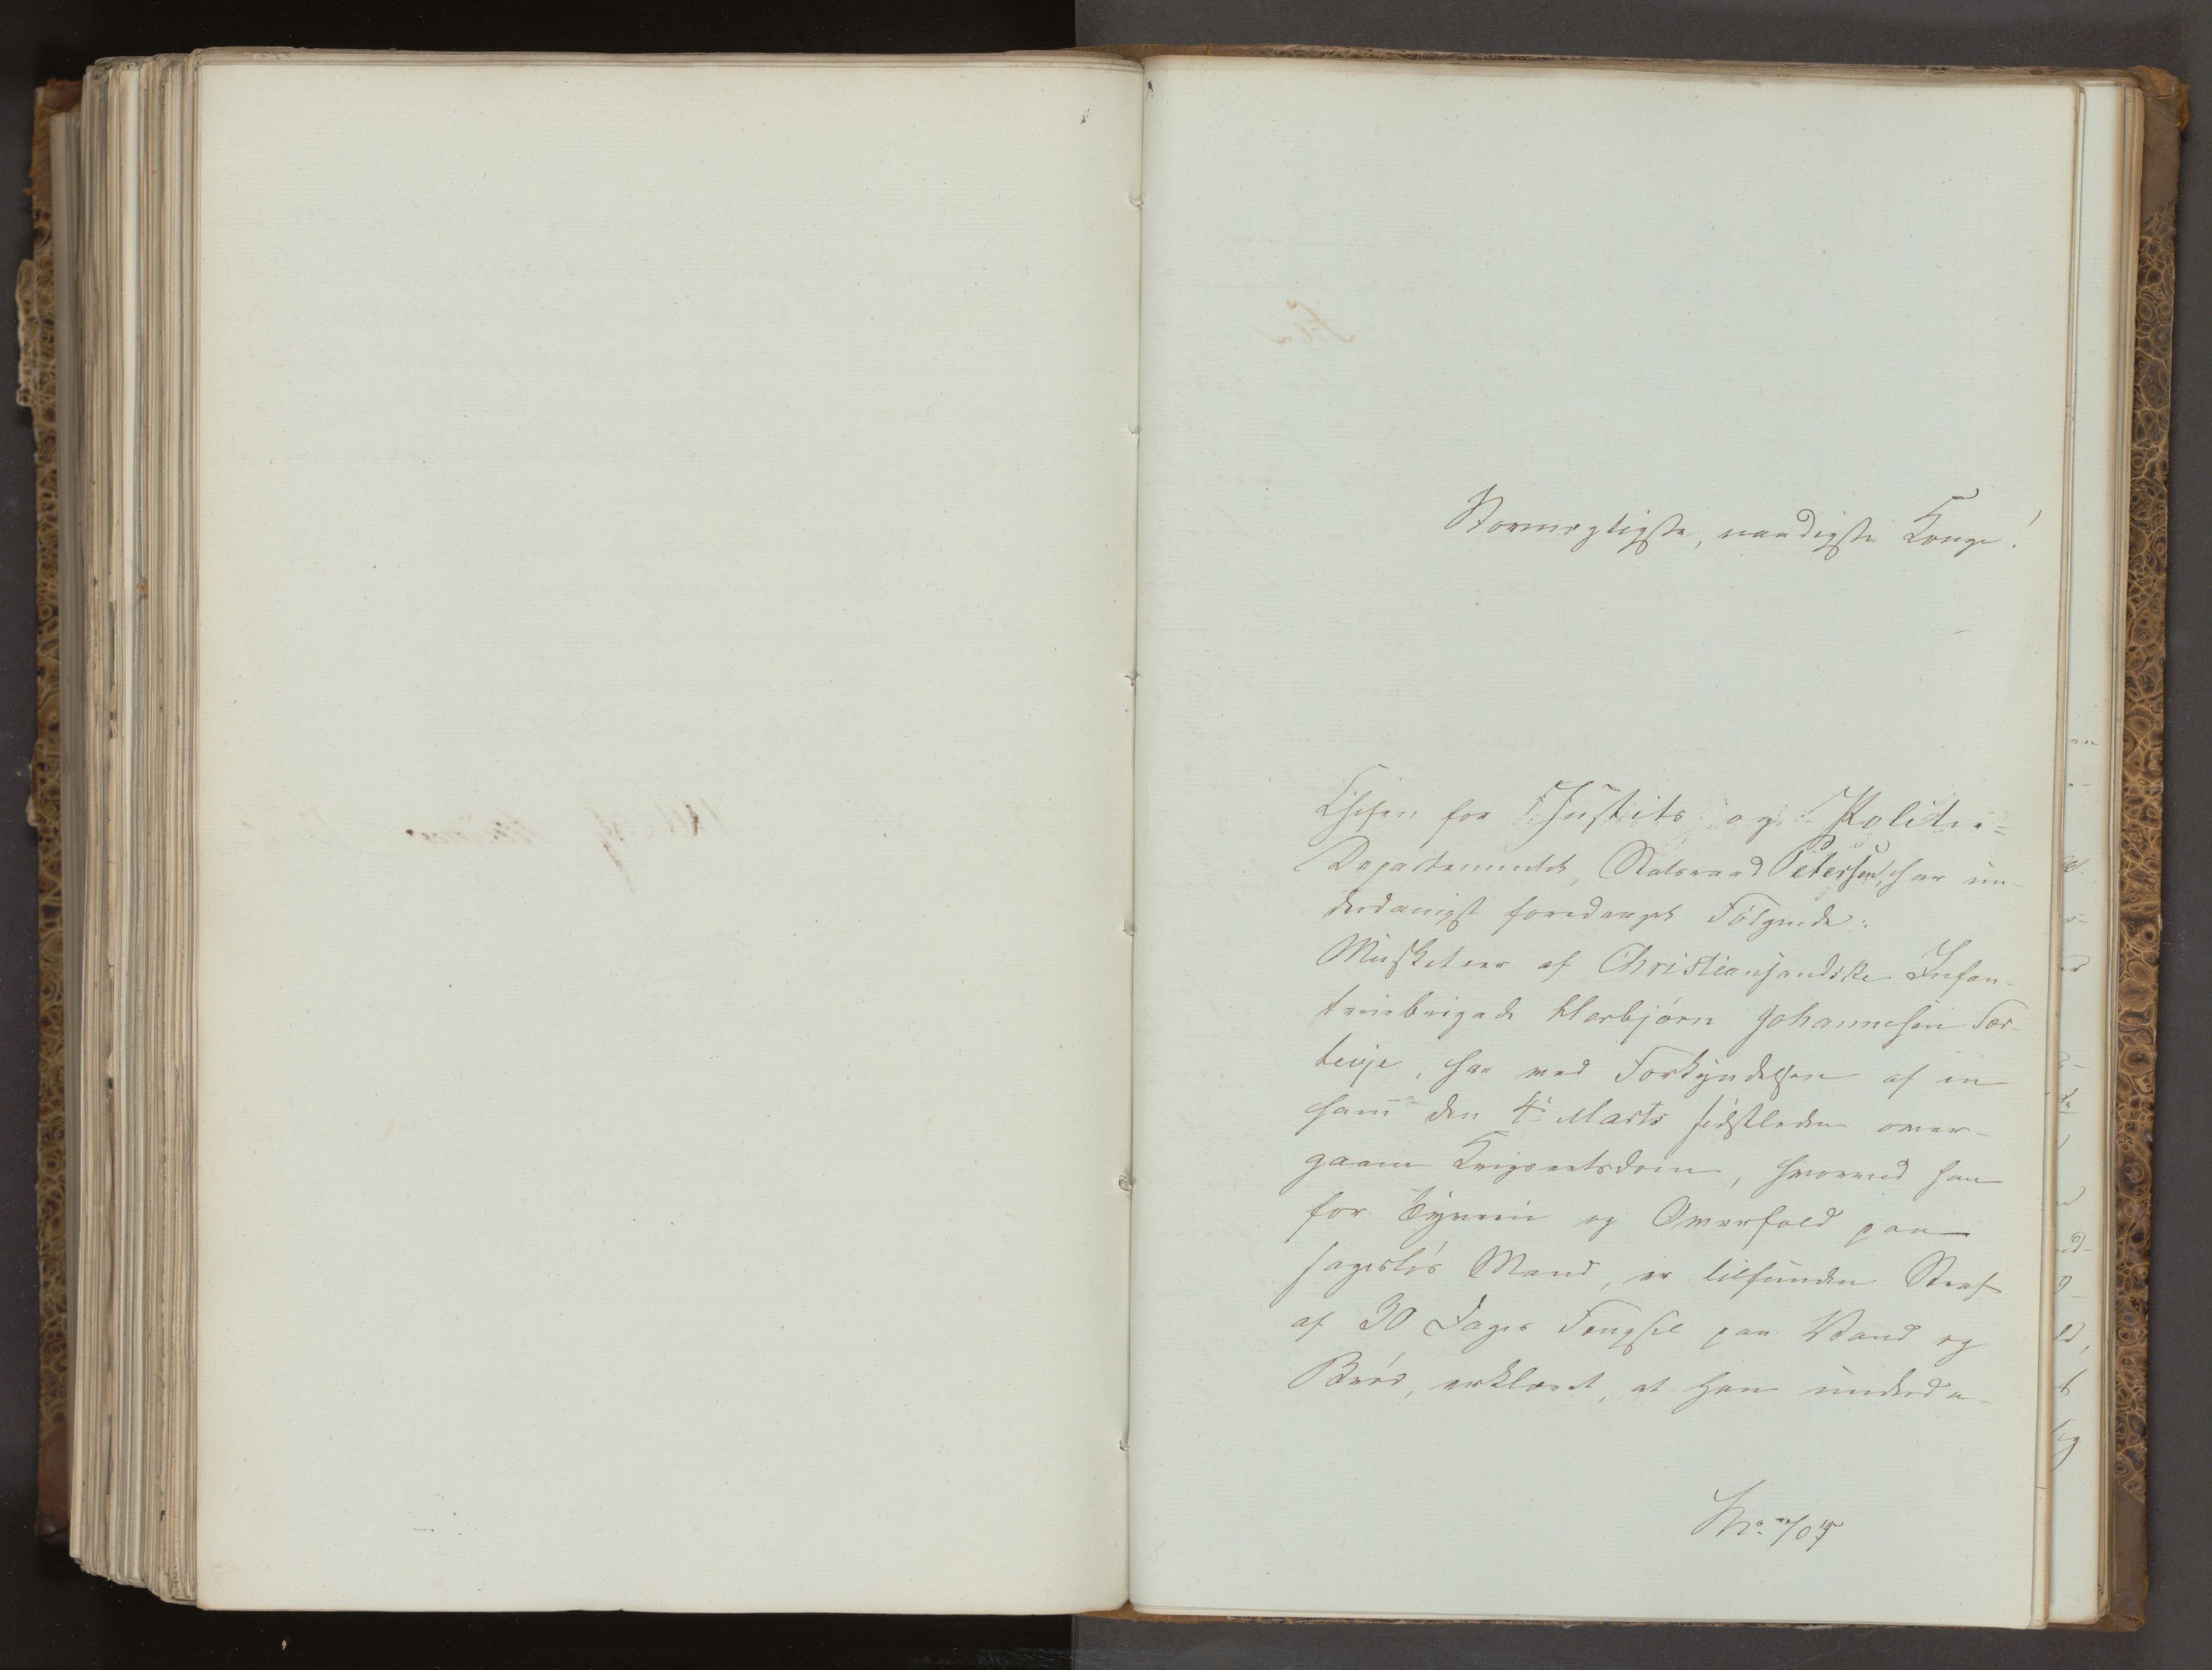 Stormægtigste, naadigste Konge!
Chefen for Justits og Politie-
Departementet, Statsraad Petersen, har un-
derdanigst foredraget Følgende:
Musketeer af Christiansandske Infan-
teriebrigade Herbjørn Johannesen Tor-
teige, har ved Forkyndelsen af en
ham den 4de Marts sidstleden over-
gaaen Krigsretsdom, hvorved han
for Tyverie og Overfald paa
sagesløs Mand, er tilfunden Straf
af 30 Dages Fængsel paa Vand og
Brød, erklæret, at han underda-
No. 704